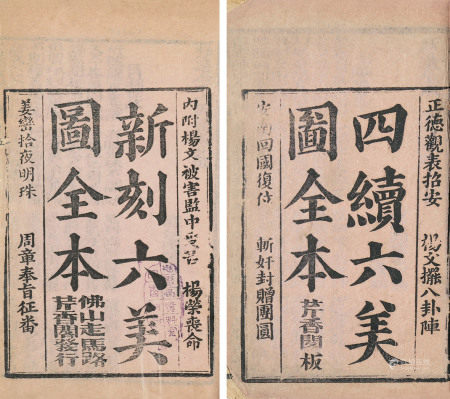 正德觀表招安　楊文擺八卦陣
四續六美
圖全本
芹香閣板
回國復位　斬奸封贈團圓
內附楊文被害監中受苦　楊榮喪命
新刻六美
圖全本
佛山走馬路
芹香閣發行
姜巒拾夜明珠　周軍奉旨征番